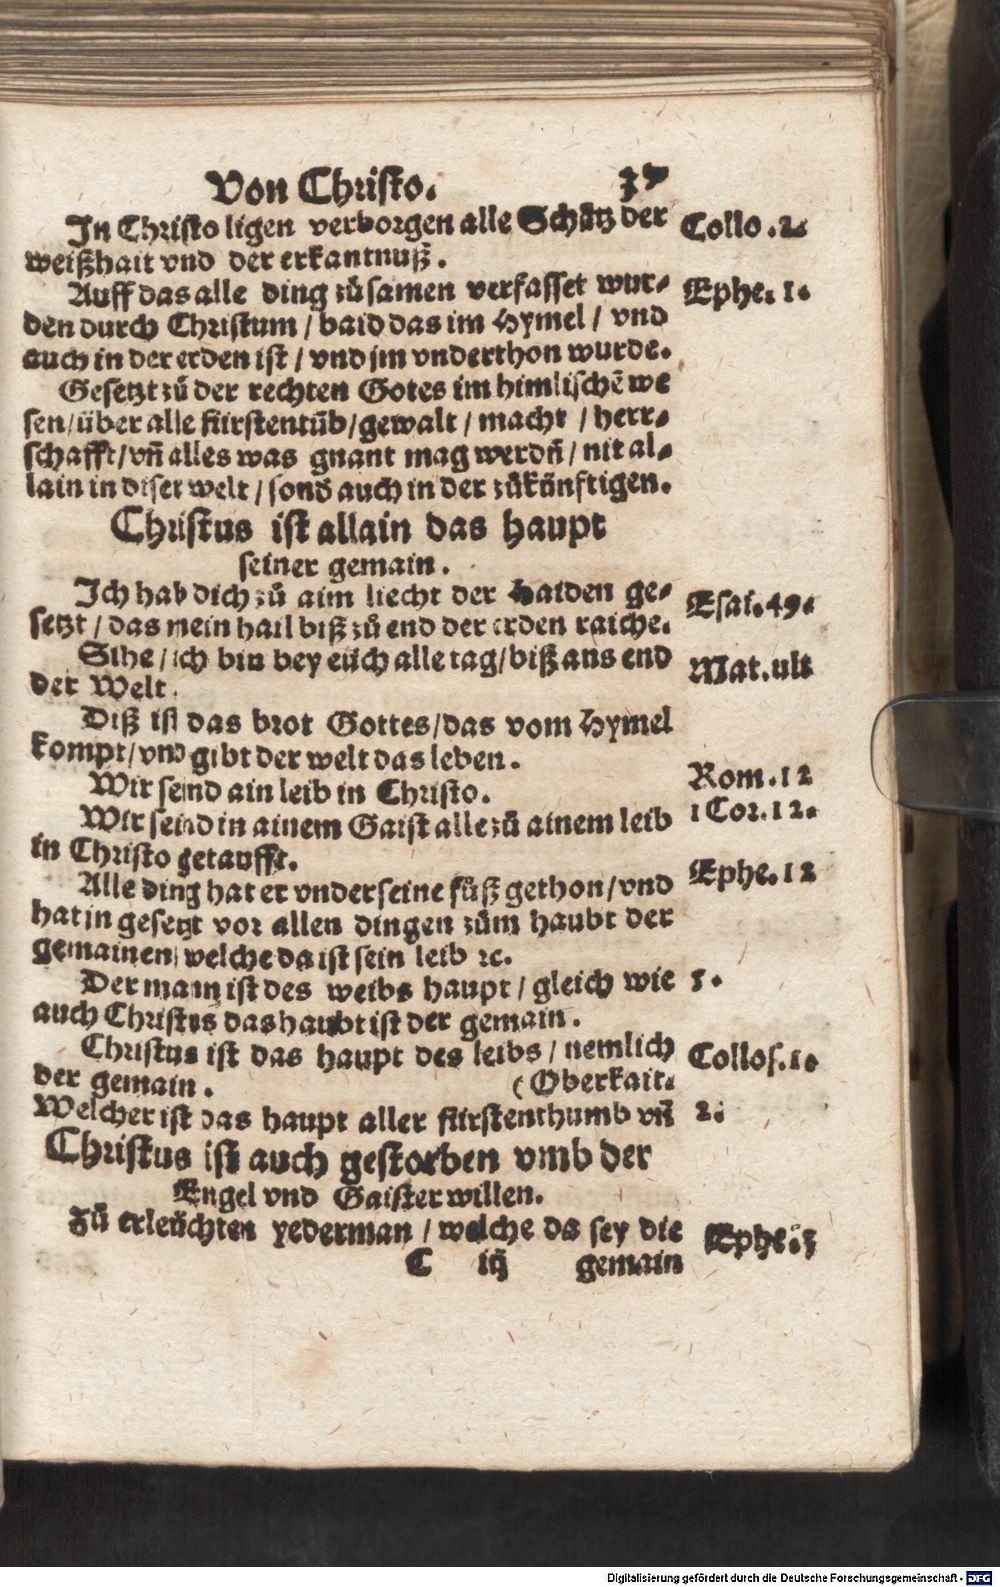 Von Christo. 37
In Christo ligen verborgen alle Schätz der Collo.2.
weißhait vnd der erkantnuß.
Auff das alle ding zůsamen verfasset wur- Ephe. 1.
den durch Christum / baid das im Hymel / vnd
auch in der erden ist / vnd jm vnderthon wurde.
Gesetzt zů der rechten Gotes im himlischē we
sen / über alle fürstentūb / gewalt / macht / herr-
schafft / vn̄ alles was gnant mag werdn̄ / nit al-
lain in diser welt / sond̄ auch in der zůkünftigen.
Christus ist allain das haupt
seiner gemain.
Ich hab dich zů aim liecht der Haiden ge- Esai.49.
setzt / das mein hail biß zů end der erden raiche.
Sihe / ich bin bey eüch alle tag / biß ans end Mat.ult
der Welt.
Diß ist das brot Gottes / das vom Hymel
kompt / vnd gibt der welt das leben.
Wir seind ain leib in Christo. Rom.12
Wir seind in ainem Gaist alle zů ainem leib 1 Cor.12.
in Christo getaufft.
Alle ding hat er vnder seine füß gethon / vnd Ephe.12
hat jn gesetzt vor allen dingen zům haubt der
gemainen / welche da ist sein leib ꝛc.
Der mann ist des weibs haupt / gleich wie 5.
auch Christus das haubt ist der gemain.
Christus ist das haupt des leibs / nemlich Collos.1.
der gemain. (Oberkait.
Welcher ist das haupt aller fürstenthumb vn̄ 2.
Christus ist auch gestorben vmb der
Engel vnd Gaister willen.
Zů erleüchten yederman / welche da sey die Ephe.3
C iij gemain
Digitalisierung gefördert durch die Deutsche Forschungsgemeinschaft - DFG